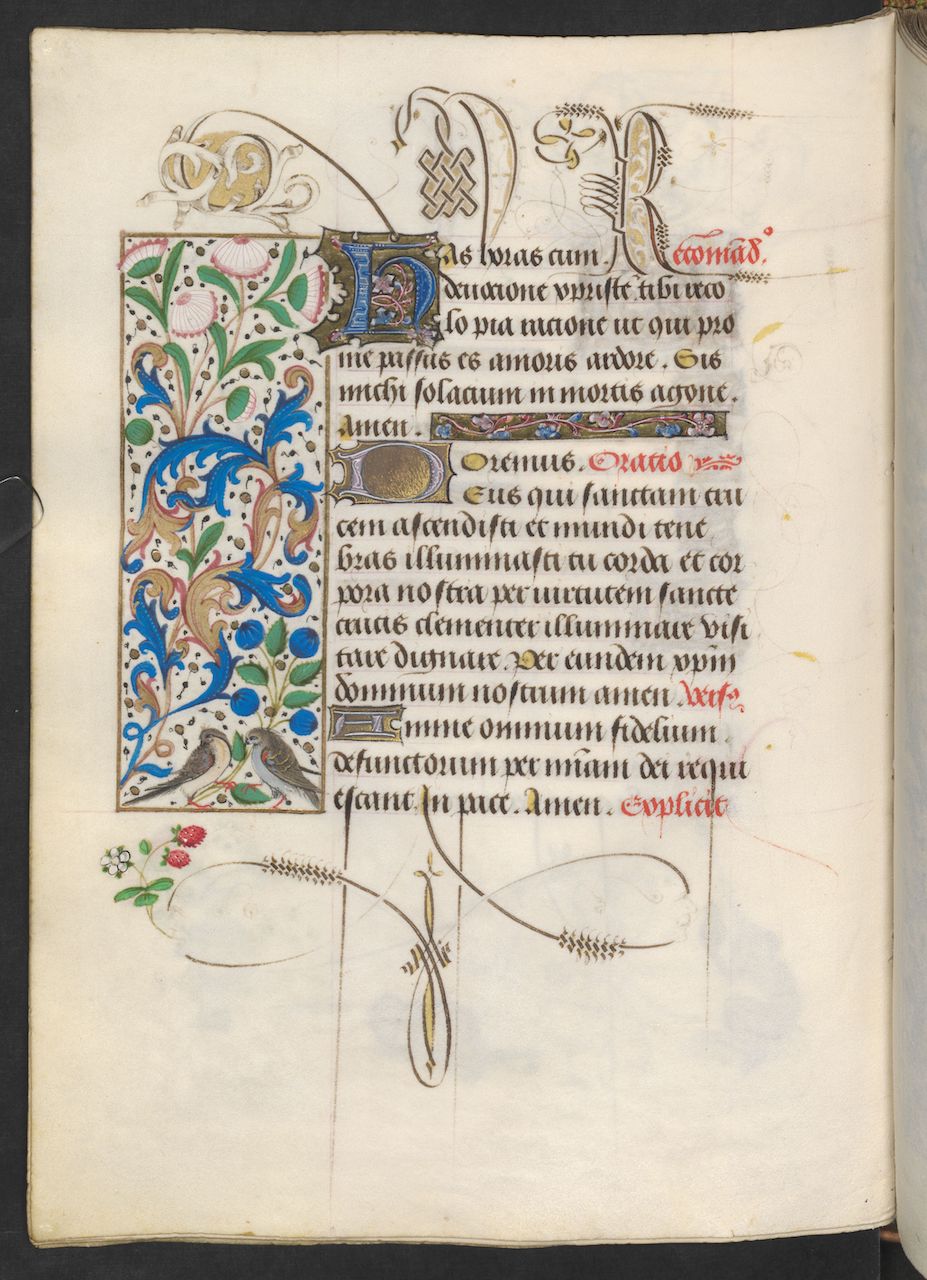 Has horas cum. Recōmād°.
deuocione xpriste tibi reco
lo pia racione ut qui pro
me passus es amoris ardore. Sis
michi solacium in mortis agone.
Amen.
Oremus. Oratio
Deus qui sanctam cru
cem ascendisti et mundi tene
bras illuminasti tu corda et cor
pora nostra per uirtutem sancte
crucis clementer illuminare visi
tare dignare. Per eundem xpm̄
dominum nostrum amen Vers⁹
Anime omnium fidelium
defunctorum per mīam dei requi
escant. In pace. Amen. Explicit